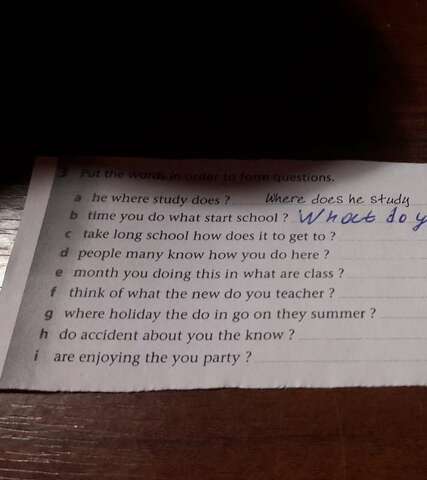 3 Put the words in order to form questions.
a he where study does ? Where does he study
b time you do what start school ? What do y
c take long school how does it to get to ?
d people many know how you do here ?
e month you doing this in what are class ?
f think of what the new do you teacher ?
g where holiday the do in go on they summer ?
h do accident about you the know ?
i are enjoying the you party ?